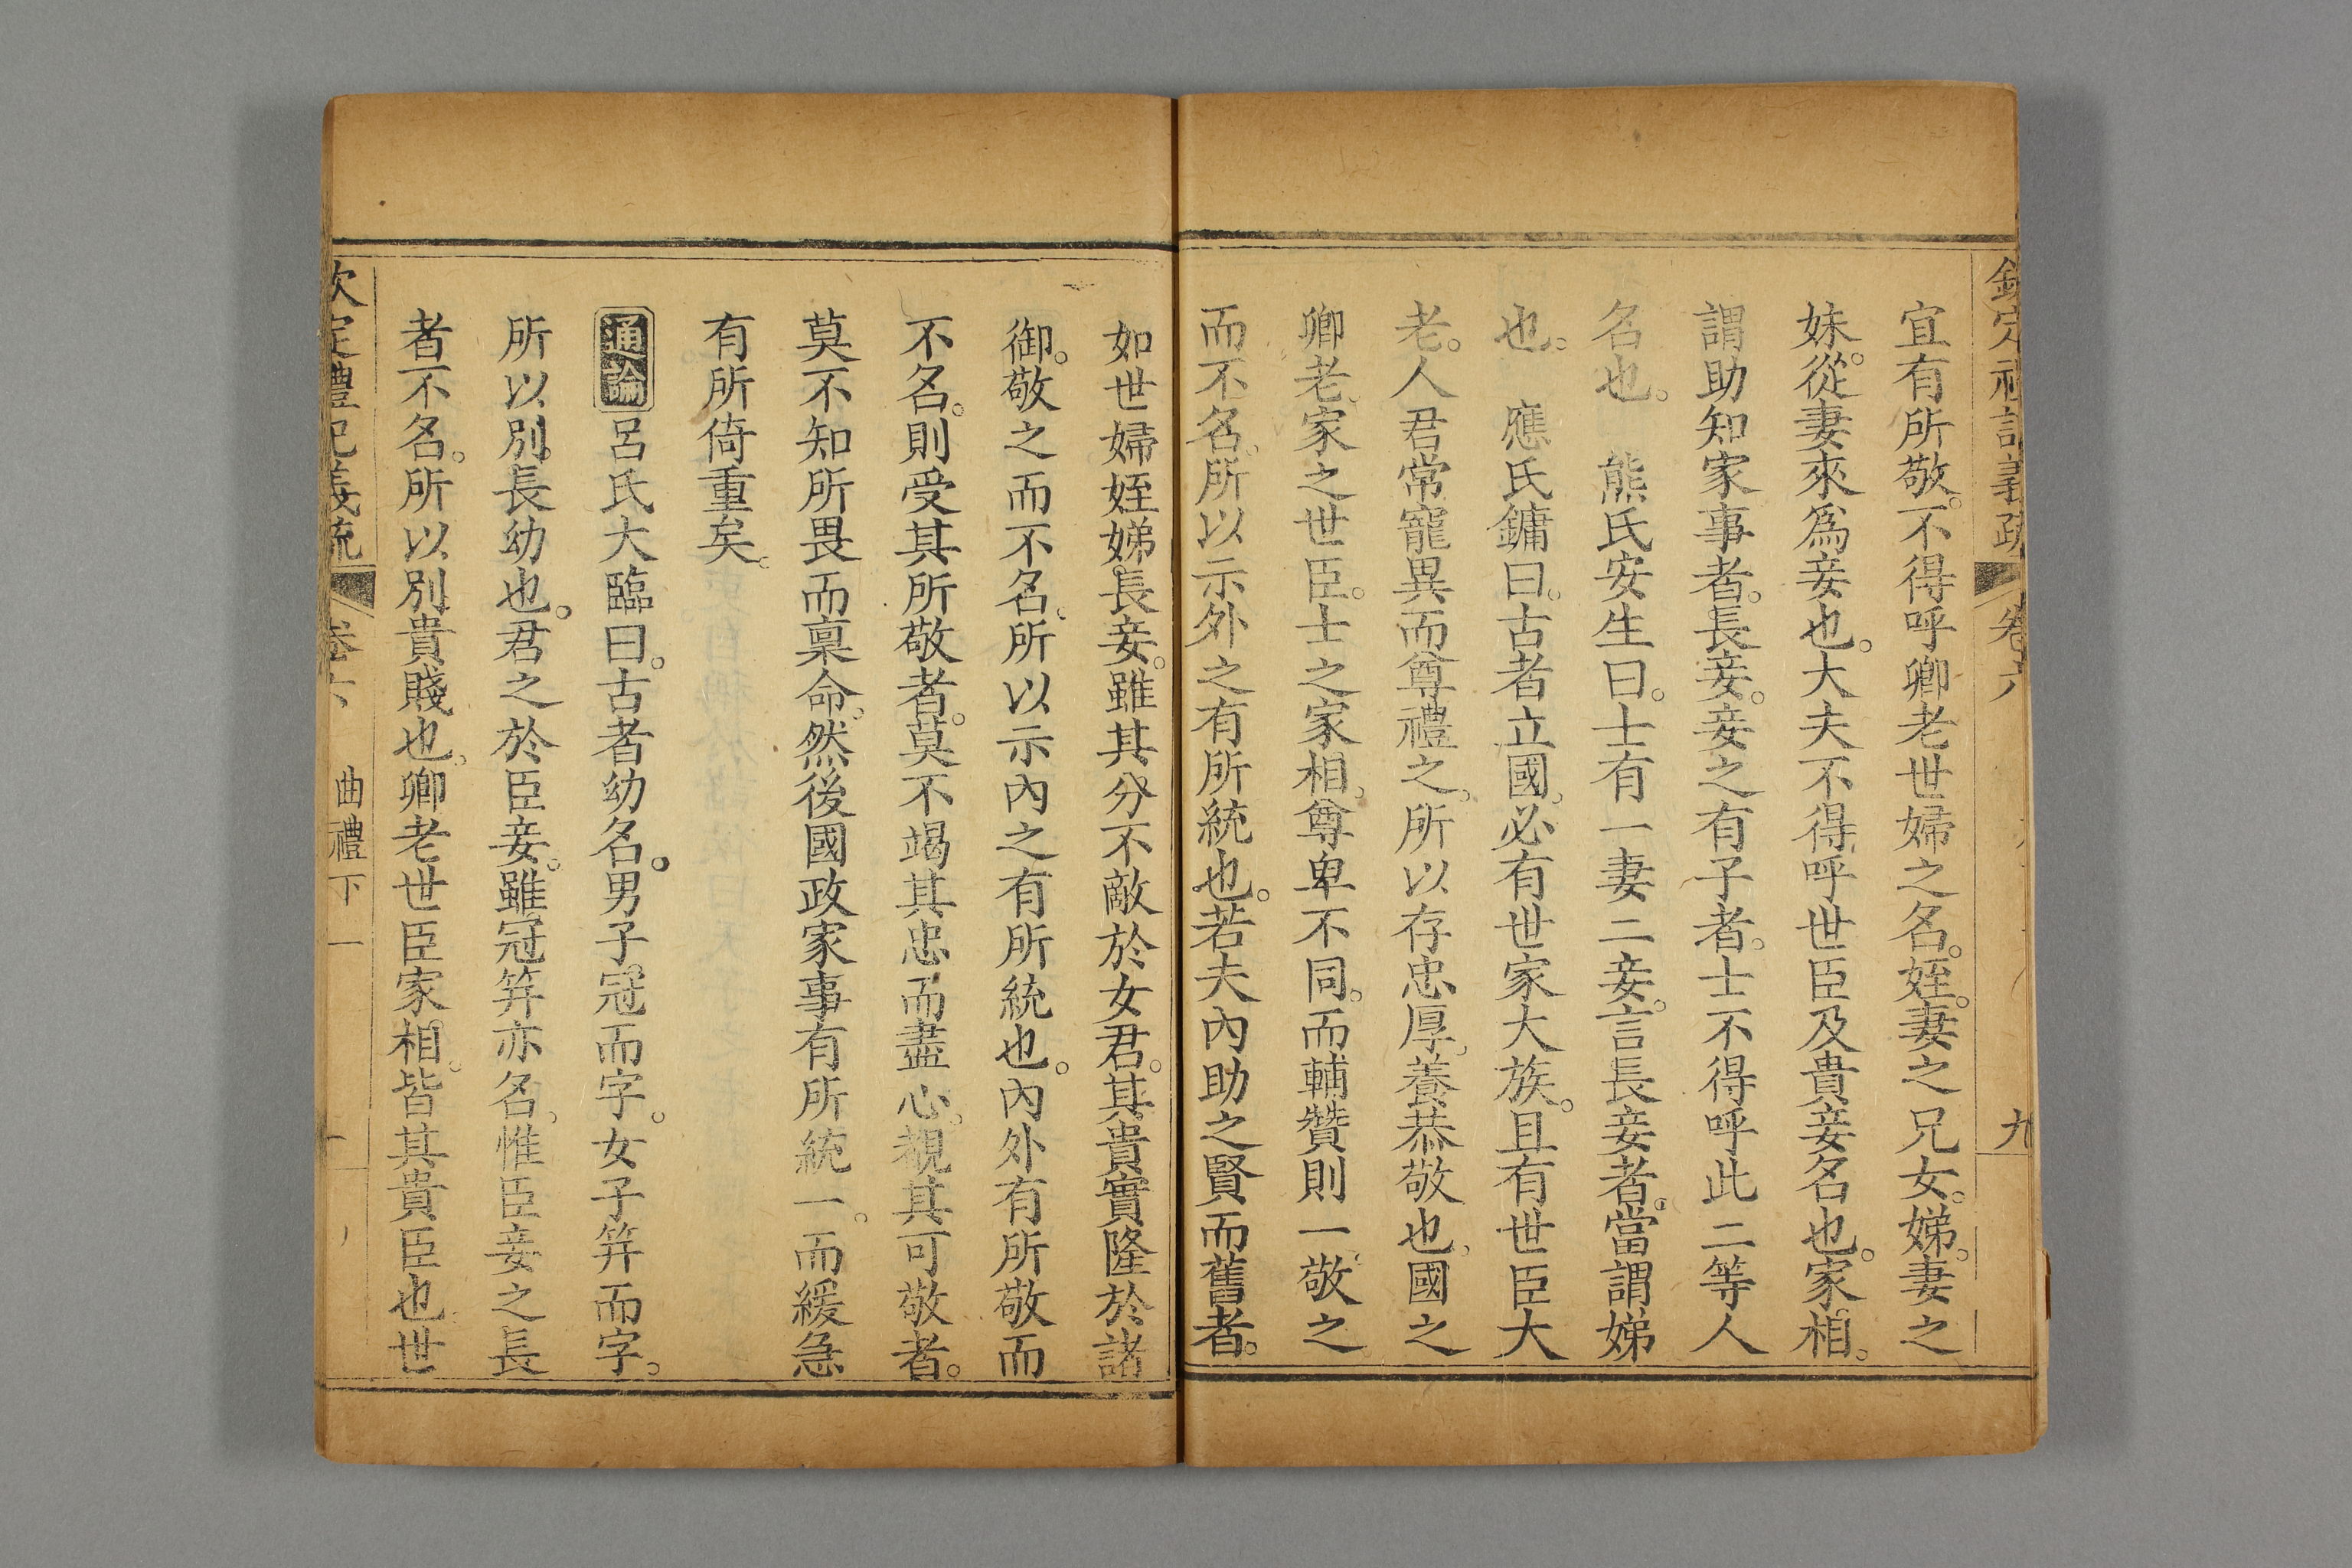 欽定禮記義疏 卷六 九
宜有所敬。不得呼卿老世婦之名。姪。妻之兄女。娣。妻之
妹。從妻來為妾也。大夫不得呼世臣及貴妾名也。家相。
謂助知家事者。長妾。妾之有子者。士不得呼此二等人
名也。 熊氏安生曰。士有一妻二妾。言長妾者。當謂娣
也。 應氏鏞曰。古者立國。必有世家大族。且有世臣大
老。人君常寵異而尊禮之。所以存忠厚。養恭敬也。國之
卿老。家之世臣。士之家相。尊卑不同。而輔贊則一。敬之
而不名。所以示外之有所統也。若夫內助之賢而舊者。
如世婦姪娣長妾。雖其分不敵於女君。其貴實隆於諸
御。敬之而不名。所以示內之有所統也。內外有所敬而
不名。則受其所敬者。莫不竭其忠而盡心。視其可敬者。
莫不知所畏而稟命。然後國政家事有所統一。而緩急
有所倚重矣。
通論 呂氏大臨曰。古者幼名。男子冠而字。女子笄而字。
所以別長幼也。君之於臣妾。雖冠笄亦名。惟臣妾之長
者不名。所以別貴賤也。卿老世臣家相。皆其貴臣也。世
欽定禮記義疏 卷六 曲禮下一